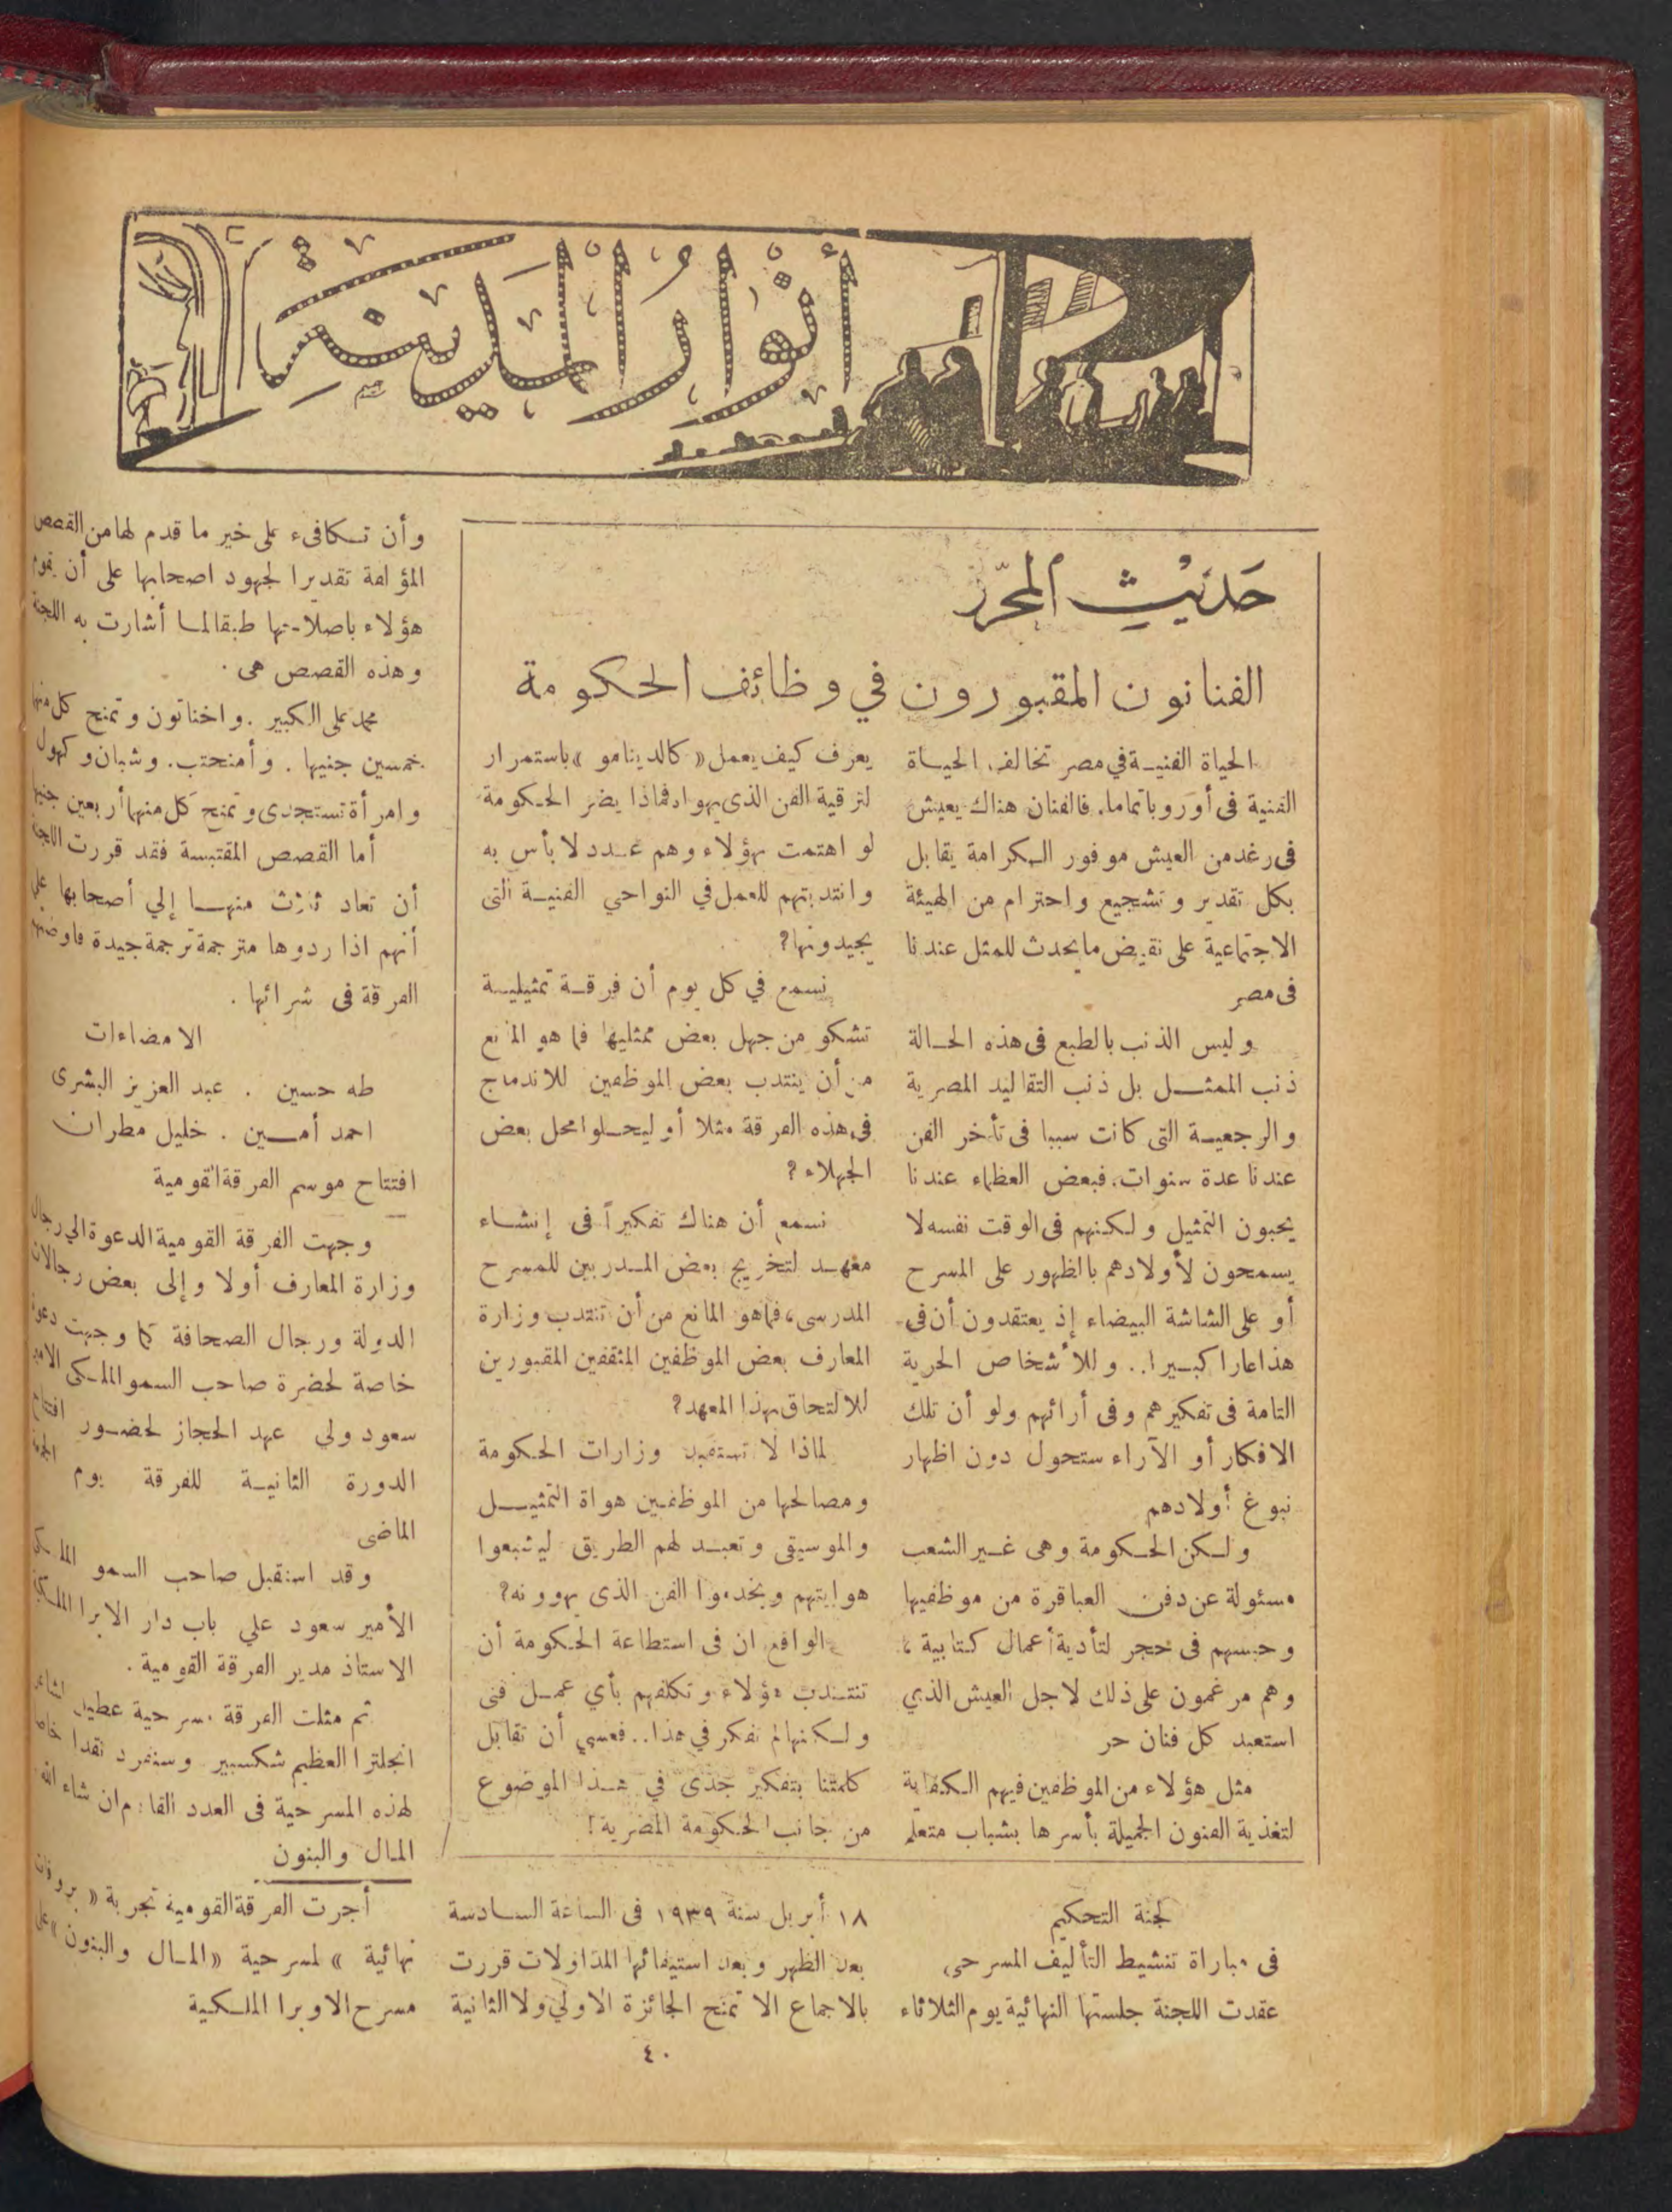 أنوار المدينة
حديث المحرر
الفنانون المقبورون في وظائف الحكومة
الحياة الفنية في مصر تخالف الحياة
الفنية فى أوروبا تماما. فالفنان هناك يعيش
فى رغد من العيش موفور الكرامة يقابل
بكل تقدير وتشجيع واحترام من الهيئة
الاجتماعية على نقيض ما يحدث للمثل عندنا
فى مصر
وليس الذنب بالطبع فى هذه الحالة
ذنب الممثل بل ذنب التقاليد المصرية
والرجعية التى كانت سببا فى تأخر الفن
عندنا عدة سنوات. فبعض العظماء عندنا
يحبون التمثيل ولكنهم فى الوقت نفسه لا
يسمحون لأولادهم بالظهور على المسرح
أو على الشاشة البيضاء إذ يعتقدون أن فى
هذا عارا كبيرا.. وللأشخاص الحرية
التامة فى تفكيرهم وفى أرائهم ولو أن تلك
الافكار أو الآراء ستحول دون اظهار
نبوغ أولادهم
ولكن الحكومة وهى غير الشعب
مسئولة عن دفن العباقرة من موظفيها
وحبسهم فى حجر لتأدية أعمال كتابية ،
وهم مرغمون على ذلك لاجل العيش الذي
استعبد كل فنان حر
مثل هؤلاء من الموظفين فيهم الكفاية
لتغذية الفنون الجميلة بأسرها بشباب متعلم
يعرف كيف يعمل « كالدينامو » باستمرار
لترقية الفن الذى يهواه فماذا يضر الحكومة
لو اهتمت بهؤلاء وهم عدد لا بأس به
وانتدبتهم للعمل في النواحي الفنية التى
يجيدونها؟
نسمع في كل يوم أن فرقة تمثيلية
تشكو من جهل بعض ممثليها فما هو المانع
من أن ينتدب بعض الموظفين للاندماج
فى هذه الفرقة مثلا أو ليحلوا محل بعض
الجهلاء ؟
نسمع أن هناك تفكيراً فى إنشاء
معهد لتخريج بعض المدربين للمسرح
المدرسى، فما هو المانع من أن تنتدب وزارة
المعارف بعض الموظفين المثقفين المقبورين
للالتحاق بهذا المعهد؟
لماذا لا تستفيد وزارات الحكومة
ومصالحها من الموظفين هواة التمثيل
والموسيقى وتعبد لهم الطريق ليشبعوا
هوايتهم ويخدموا الفن الذى يهوونه؟
الواقع ان فى استطاعة الحكومة أن
تنتدب هؤلاء وتكلفهم بأي عمل فنى
ولكنها لم تفكر في هذا.. فعسي أن تقابل
كلمتنا بتفكير جدى في هذا الموضوع
من جانب الحكومة المصرية!
لجنة التحكيم
فى مباراة تنشيط التأليف المسرحى
عقدت اللجنة جلستها النهائية يوم الثلاثاء
١٨ أبريل سنة ١٩٣٩ فى الساعة السادسة
بعد الظهر وبعد استيفائها المداولات قررت
بالاجماع الا تمنح الجائزة الاولي ولا الثانية
وأن تكافىء على خير ما قدم لها من القصص
المؤلفة تقديرا لجهود اصحابها على أن يقوم
هؤلاء باصلاحها طبقا لما أشارت به اللجنة
وهذه القصص هى .
محمد على الكبير . واخناتون وتمنح كل منها
خمسين جنيها . وأمنحتب. وشبان وكهول
وامرأة تستجدى وتمنح كل منها أربعين جنيها
أما القصص المقتبسة فقد قررت اللجنة
أن تعاد ثلاث منها إلي أصحابها على
أنهم اذا ردوها مترجمة ترجمة جيدة فاوضتهم
الفرقة فى شرائها .
الامضاءات
طه حسين . عبد العزيز البشرى
احمد أمين . خليل مطران
افتتاح موسم الفرقة القومية
وجهت الفرقة القومية الدعوة الي رجال
وزارة المعارف أولا وإلى بعض رجالات
الدولة ورجال الصحافة كما وجهت دعوة
خاصة لحضرة صاحب السمو الملكى الامير
سعود ولي عهد الحجاز لحضور افتتاح
الدورة الثانية للفرقة يوم
الماضى
وقد استقبل صاحب السمو الملكي
الأمير سعود علي باب دار الاوبرا الملكية
الاستاذ مدير الفرقة القومية .
ثم مثلت الفرقة مسرحية عطيل لشاعر
انجلترا العظيم شكسبير وسنفرد نقدا خاصا
لهذه المسرحية فى العدد القادم ان شاء الله
المال والبنون
أجرت الفرقة القومية تجربة « بروفات
نهائية » لمسرحية « المال والبنون » على
مسرح الاوبرا الملكية
٤٠